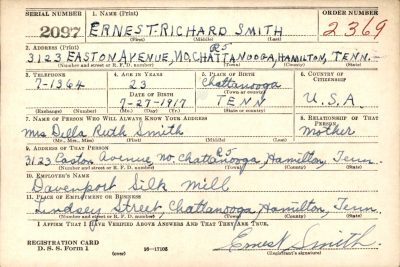 SERIAL NUMBER 1. NAME (Print) ORDER NUMBER
2097 ERNEST RICHARD SMITH 2369
(First) (Middle) (Last)
2. ADDRESS (Print) R5
3123 EASTON AVENUE, NO. CHATTANOOGA, HAMILTON, TENN.
(Number and street or R. F. D. number) (Town) (County) (State)
3. TELEPHONE 4. AGE IN YEARS 5. PLACE OF BIRTH 6. COUNTRY OF CITIZENSHIP
7-1364 23 Chattanooga
DATE OF BIRTH (Town or county)
7-27-1917 TENN U.S.A.
(Mo.) (Day) (Yr.) (State or country)
7. NAME OF PERSON WHO WILL ALWAYS KNOW YOUR ADDRESS 8. RELATIONSHIP OF THAT PERSON
Mrs Della Ruth Smith Mother
(Mr., Mrs., Miss) (First) (Middle) (Last)
9. ADDRESS OF THAT PERSON R5
3123 Easton Avenue no. Chattanooga, Hamilton, Tenn.
(Number and street or R. F. D. number) (Town) (County) (State)
10. EMPLOYER'S NAME
Davenport Silk Mill
11. PLACE OF EMPLOYMENT OR BUSINESS
Lindsey Street, Chattanooga, Hamilton, Tenn.
(Number and street or R. F. D. number) (Town) (County) (State)
I AFFIRM THAT I HAVE VERIFIED ABOVE ANSWERS AND THAT THEY ARE TRUE.
REGISTRATION CARD
D. S. S. Form 1 (over) 16-17105 Ernest Smith.
(Registrant's signature)